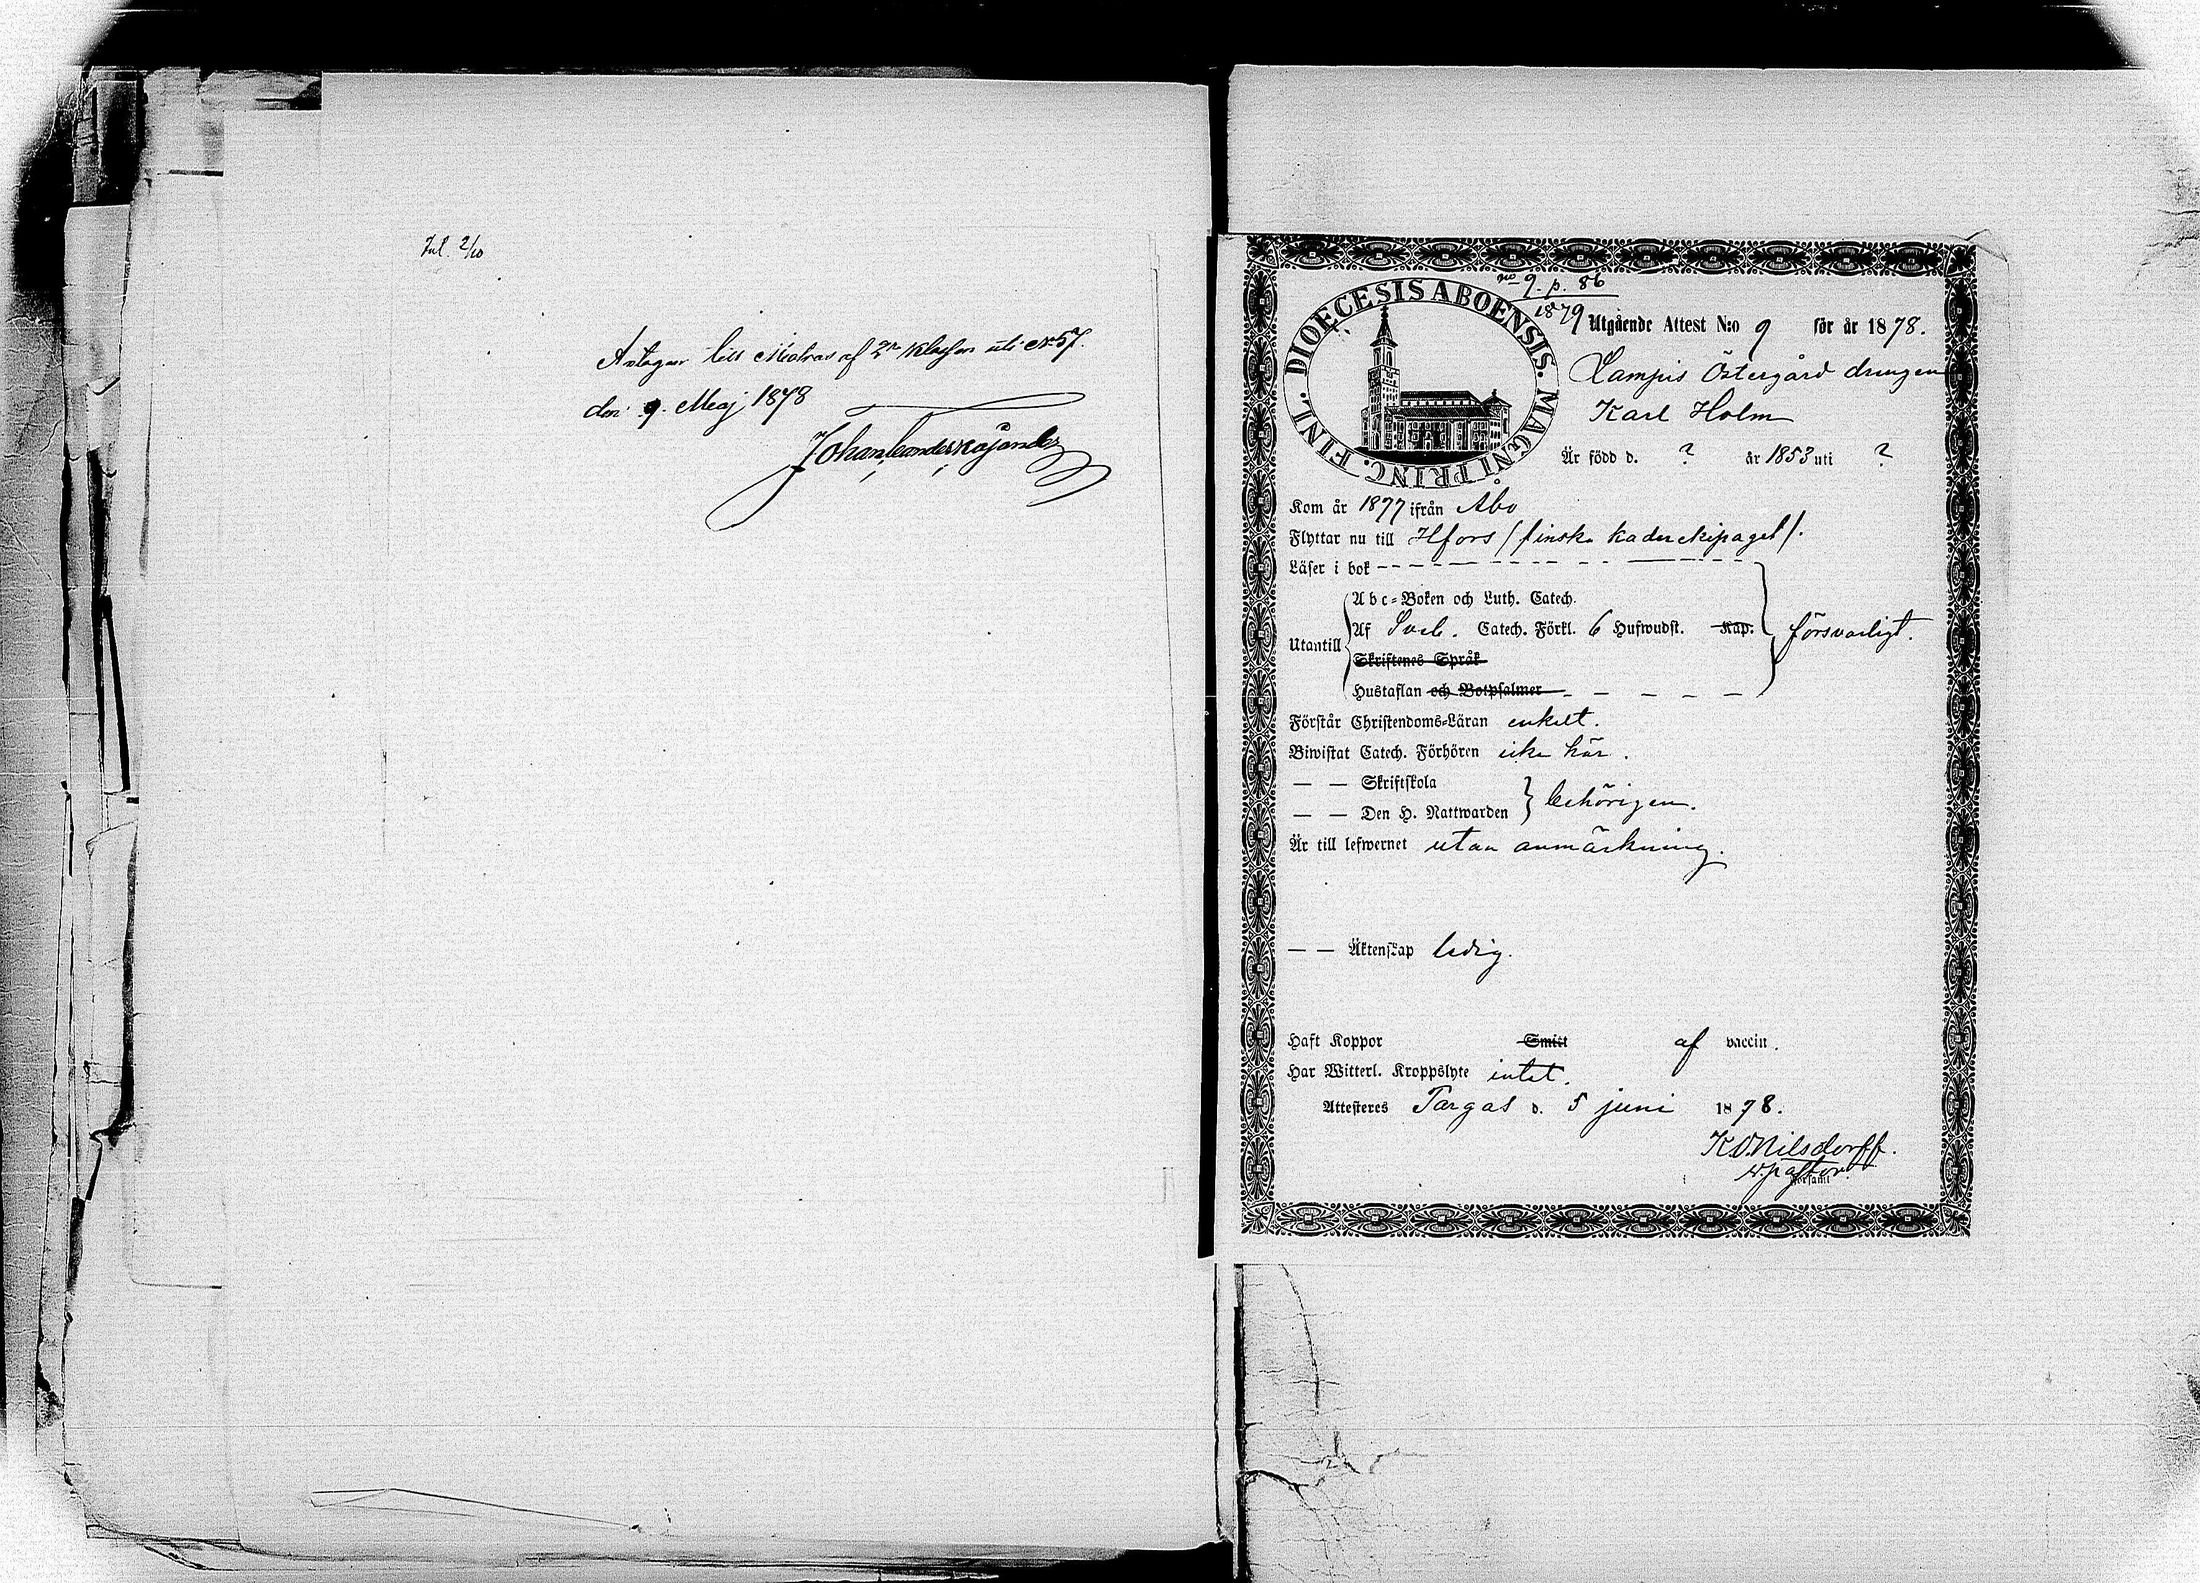 Jul. 2/10
Antagen till Matros af 2n Klassen uti No 57.
den 9. Maj 1878
Johan Leander Kajander
no 9. p. 86
1879
DIOECESIS ABOENSIS. MAGNI PRINC. FINL.
Utgående Attest N:o 9 för år 1878.
Lampis Östergård drengen
Karl Holm
Är född d. ? år 1853 uti ?
Kom år 1877 ifrån Åbo
Flyttar nu till Hfors (finska kaderekipaget).
Läser i bok
Abc-Boken och Luth. Catech.
Utantill Af Sveb. Catech. Förkl. 6 Hufwudst. Kap. försvarligt.
Skriftenes Språk
Hustaflan och Botpsalmer
Förstår Christendoms-Läran enkelt.
Biwistat Catech. Förhören icke här.
— — Skriftskola
— — Den H. Nattwarden behörigen.
Är till lefwernet utan anmärkning.
— — Äktenskap ledig.
Haft Koppor Smitt af vaccin.
Har Witterl. Kroppslyte intet.
Attesteres Pargas d. 5 juni 1878.
K.O. Nilsdorff.
v. pastor.
Församl